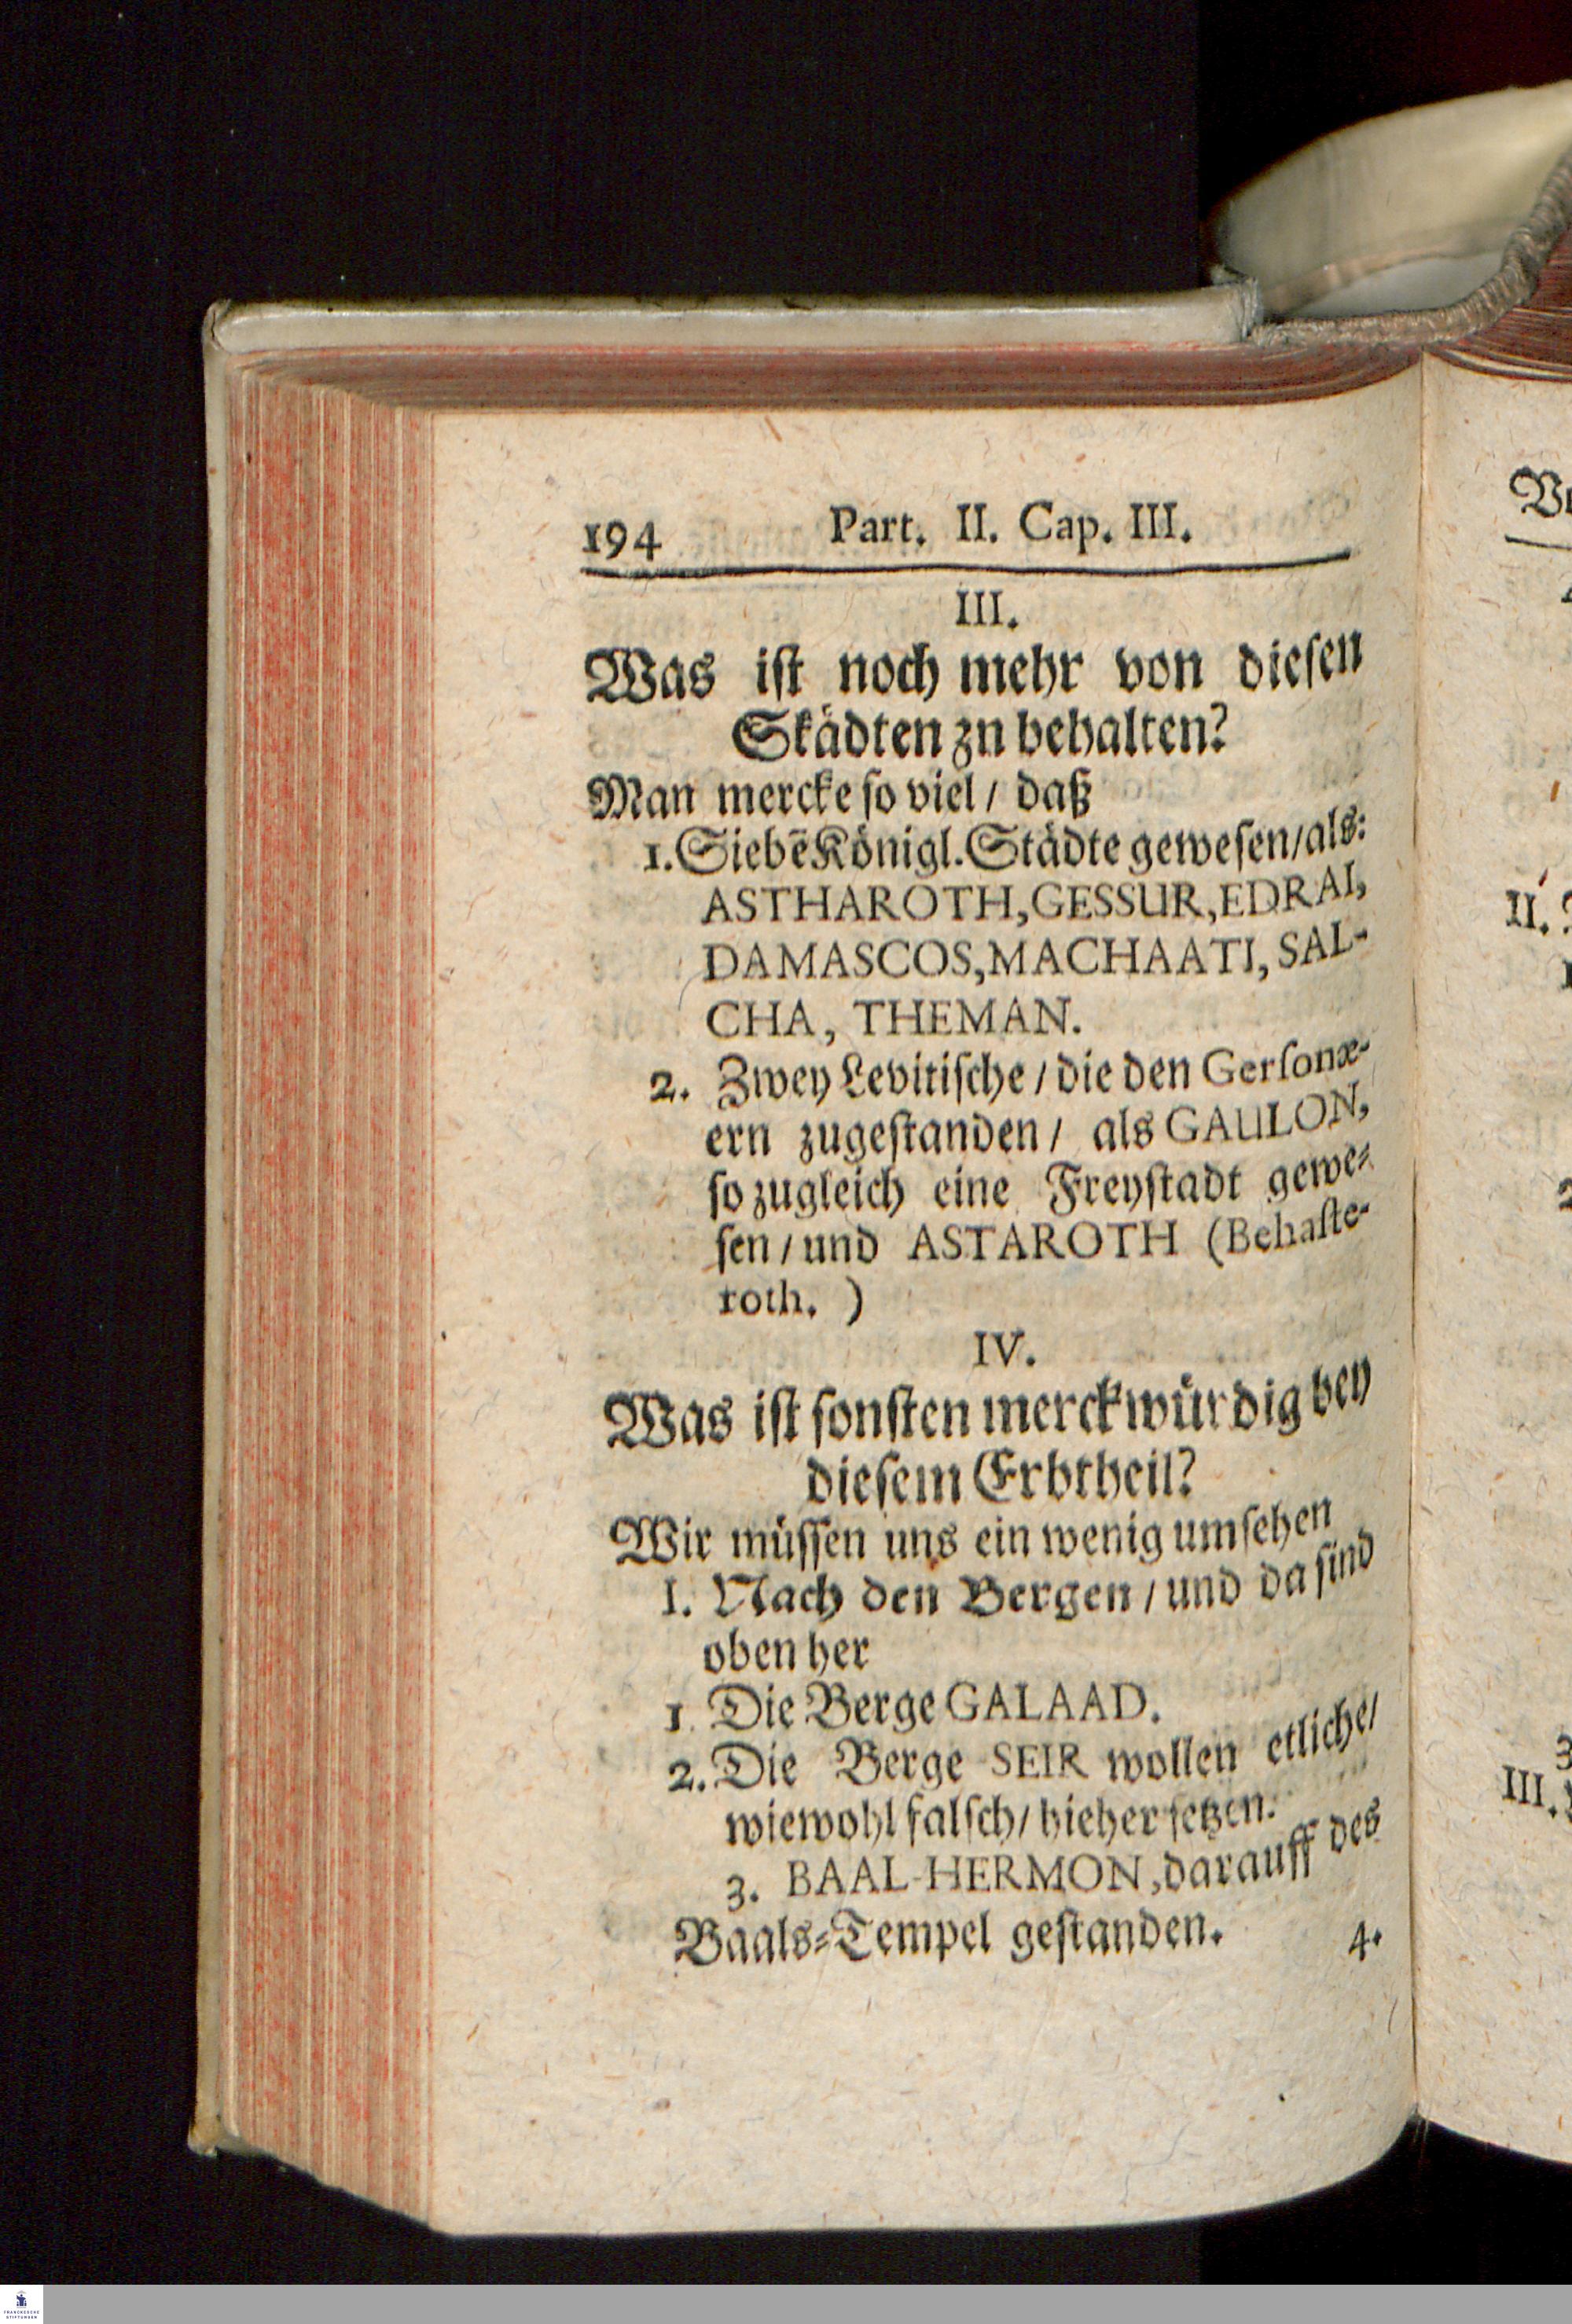 194 Part. II. Cap. III.
III.
Was ist noch mehr von diesen
Städten zu behalten?
Man mercke so viel / daß
1. Siebē Königl. Städte gewesen / als:
ASTHAROTH, GESSUR, EDRAI,
DAMASCOS, MACHAATI, SAL-
CHA, THEMAN.
2. Zwey Levitische / die den Gersonæ-
ern zugestanden / als GAULON,
so zugleich eine Freystadt gewe-
sen / und ASTAROTH (Behaste-
roth. )
IV.
Was ist sonsten merckwürdig bey
diesem Erbtheil?
Wir müssen uns ein wenig umsehen
I. Nach den Bergen / und da sind
oben her
1. Die Berge GALAAD.
2. Die Berge SEIR wollen etliche /
wiewohl falsch / hieher setzen.
3. BAAL-HERMON, darauff des
Baals-Tempel gestanden.
4.
II.
III.
FRANCKESCHE
STIFTUNGEN